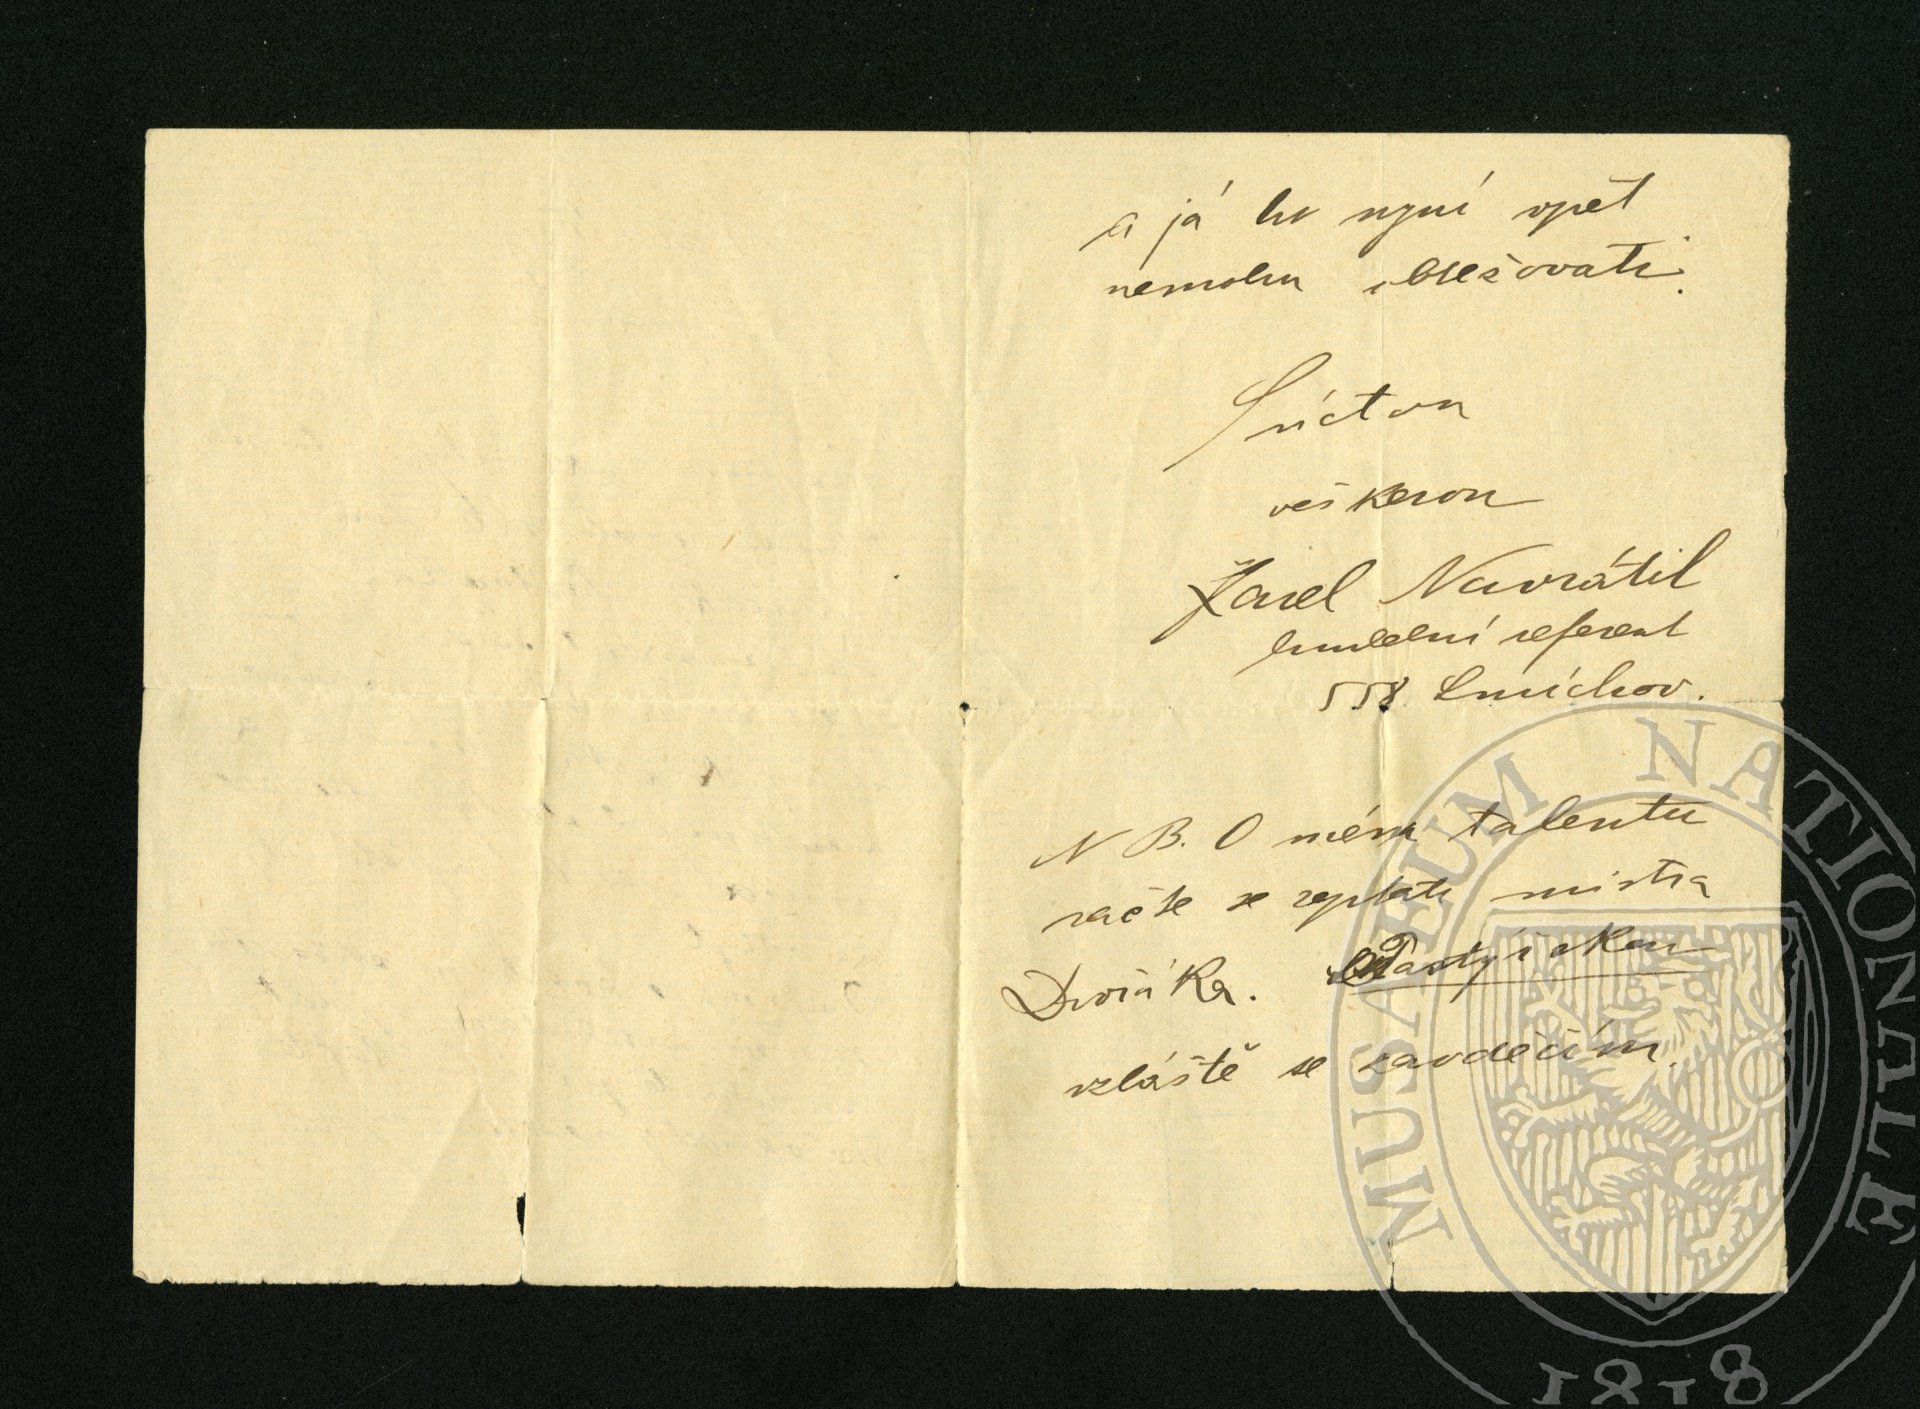 a já ho nyní opět
nemohu obtěžovati.
S úctou
veškerou
Karel Navrátil
hudební referent
558 Smíchov.
NB. O mém talentu
račte se zeptati mistra
Dvořáka.
zvláště se zavděčím.
MUSAEUM NATIONALE
1818